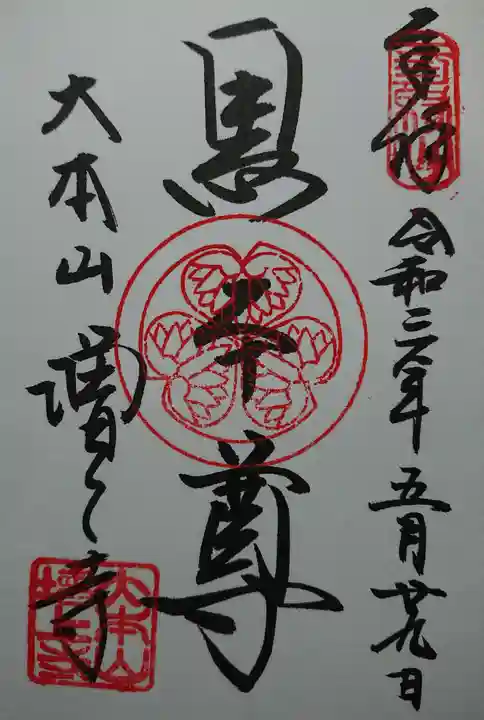 奉拝
令和三年五月廿九日
黒本尊
大本山増上寺
大本山
増上寺